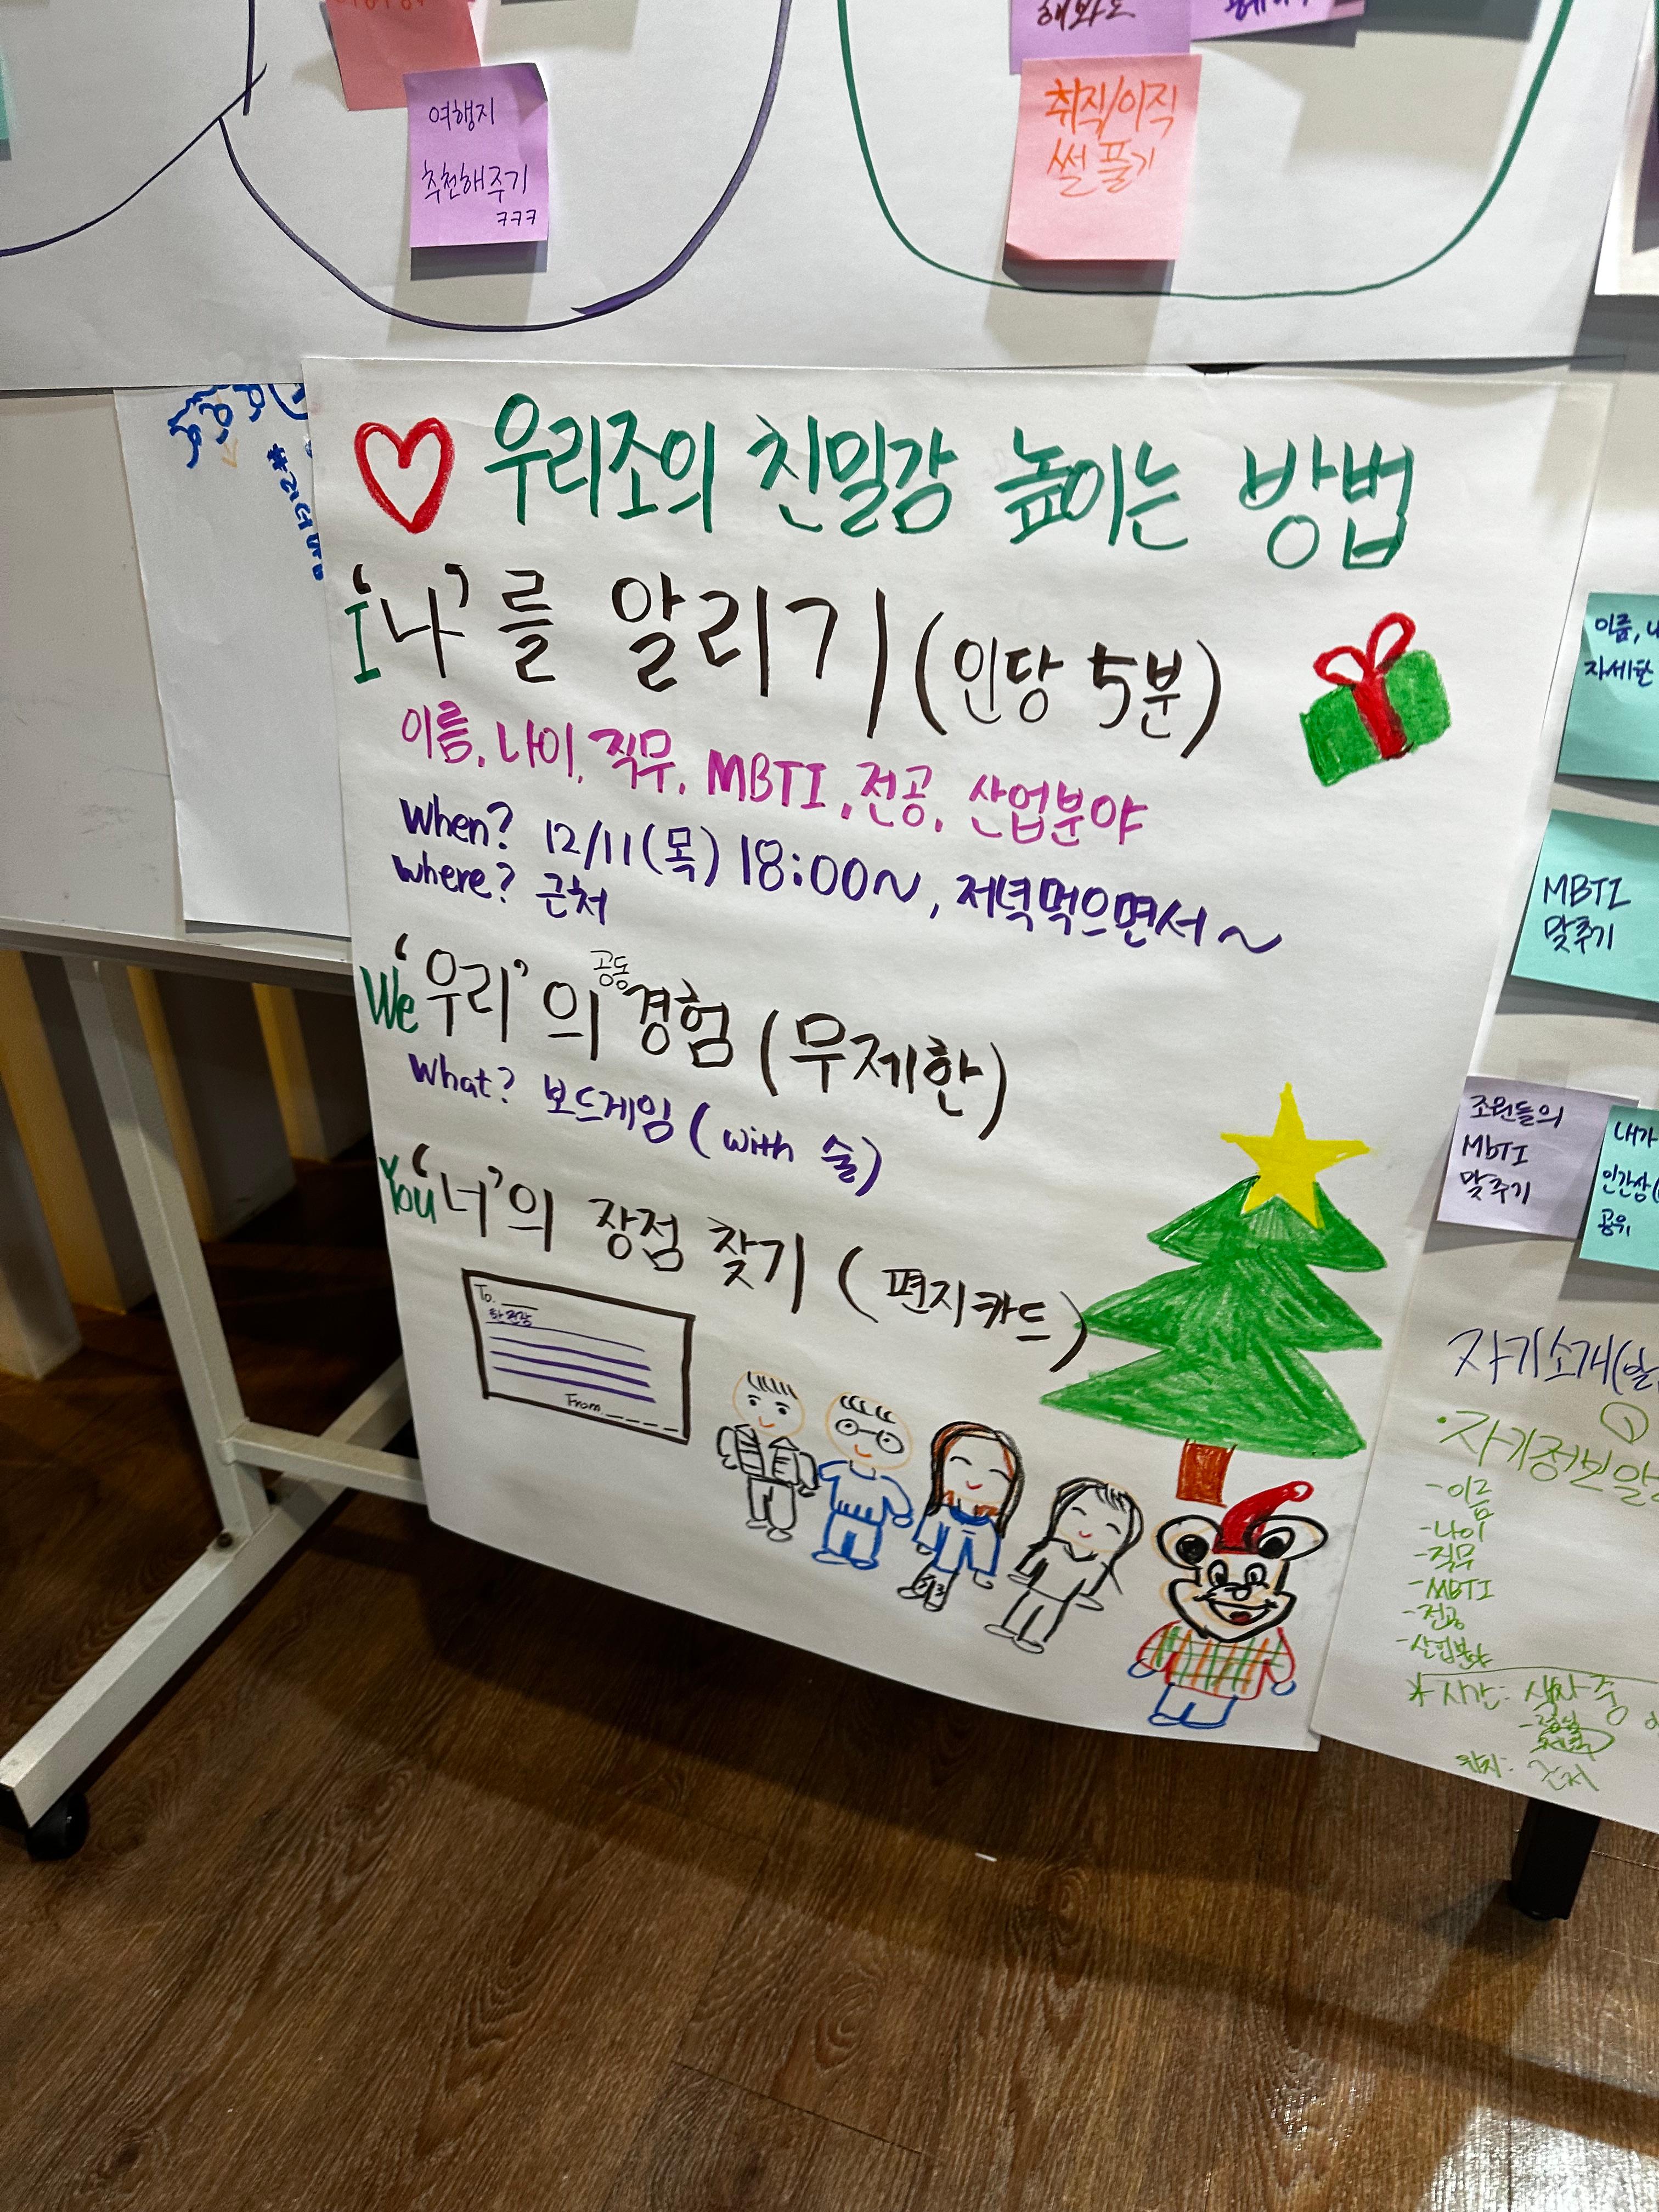 해봐도
여행지
추천해주기
ㅋㅋㅋ
취직/이직
썰 풀기
우리조의 친밀감 높이는 방법
I '나'를 알리기 (인당 5분)
이름, 나이, 직무, MBTI, 전공, 산업분야
When? 12/11(목) 18:00~, 저녁먹으면서~
Where? 근처
We '우리'의 공동 경험 (무제한)
What? 보드게임 (with 술)
You '너'의 장점 찾기 (편지카드)
To.
From
이름, 나
자세한
MBTI
맞추기
조원들의
MbTI
맞추기
내가
인간상(
공유
자기소개(
- 이름
- 나이
- 직무
- MBTI
- 전공
- 산업분야
* 시간: 식사 중